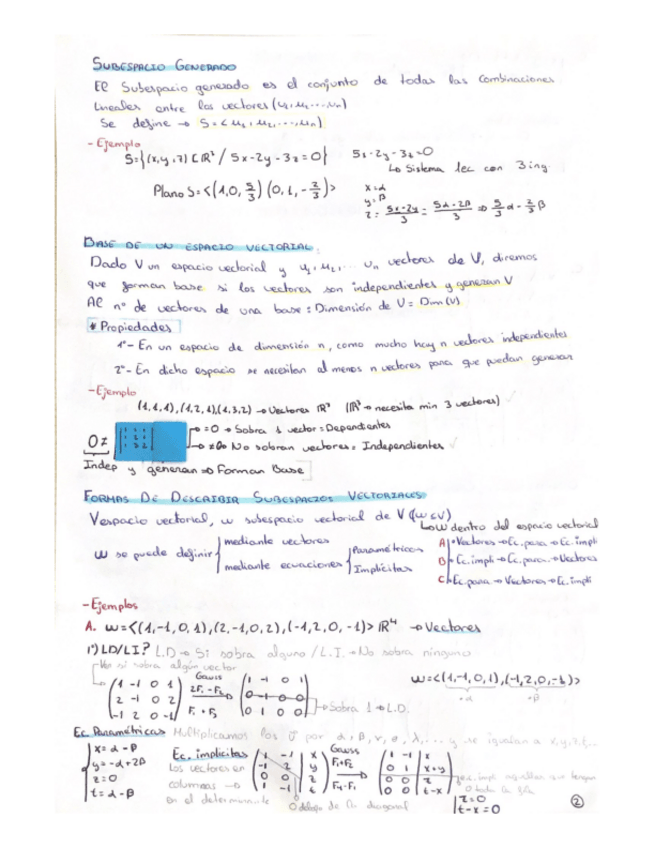 SUBESPACIO GENERADO
El Subespacio generado es el conjunto de todas las combinaciones
lineales entre los vectores (u1, u2 ... un)
Se define → S = < u1, u2, ..., un >
- Ejemplo
S = {(x,y,z) ∈ ℝ³ / 5x-2y-3z=0} 5x-2y-3z=0
↳ Sistema lec con 3 inq
Plano S = <(1,0,5/3) (0,1,-2/3)>
x=α
y=β
z = 5x-2y/3 = 5α-2β/3 ⇒ 5/3 α - 2/3 β
BASE DE UN ESPACIO VECTORIAL:
Dado V un espacio vectorial y u1, u2, ... un vectores de V, diremos
que forman base si los vectores son independientes y generan V
Al nº de vectores de una base: Dimensión de V = Dim(V)
* Propiedades
1º- En un espacio de dimensión n, como mucho hay n vectores independientes
2º- En dicho espacio se necesitan al menos n vectores para que puedan generar
- Ejemplo
(1,1,1), (1,2,1), (1,3,2) → Vectores ℝ³ (ℝ³ → necesita min 3 vectores) ✓
0≠ | 1 1 1 | 1 2 1 | 1 3 2 |
→ =0 → Sobra 1 vector = Dependientes
→ ≠0 → No sobran vectores = Independientes ✓
Indep y generan ⇒ Forman Base
FORMAS DE DESCRIBIR SUBESPACIOS VECTORIALES
V espacio vectorial, w subespacio vectorial de V (w∈V)
↳ w dentro del espacio vectorial
w se puede definir { mediante vectores
mediante ecuaciones { Paramétricas
Implícitas
A • Vectores → Ec. para → Ec. impli
B • Ec. impli → Ec. para → Vectores
C • Ec. para → Vectores → Ec. impli
- Ejemplos
A. w = <(1,-1,0,1), (2,-1,0,2), (-1,2,0,-1)> ℝ⁴ → Vectores
1º) LD/LI? L.D → Si sobra alguno / L.I. → No sobra ninguno
Ver si sobra algún vector
(1 -1 0 1 | 2 -1 0 2 | -1 2 0 -1) Gauss 2F1-F2 F1+F3 (1 -1 0 1 | 0 -1 0 0 | 0 1 0 0) → Sobra 1 → L.D.
w = <(1,-1,0,1), (-1,2,0,-1)>
·α ·β
Ec. Paramétricas Multiplicamos los v⃗ por α, β, γ, θ, λ, ... y se igualan a x,y,z,t...
x = α - β
y = -α + 2β
z = 0
t = α - β
Ec. implícitas
Los vectores en
columnas →
en el determinante
(1 -1 x | -1 2 y | 0 0 z | 1 -1 t) Gauss F1+F2 F4-F1 (1 -1 x | 0 1 x+y | 0 0 z | 0 0 t-x)
0 debajo de la diagonal
z=0
t-x=0
2